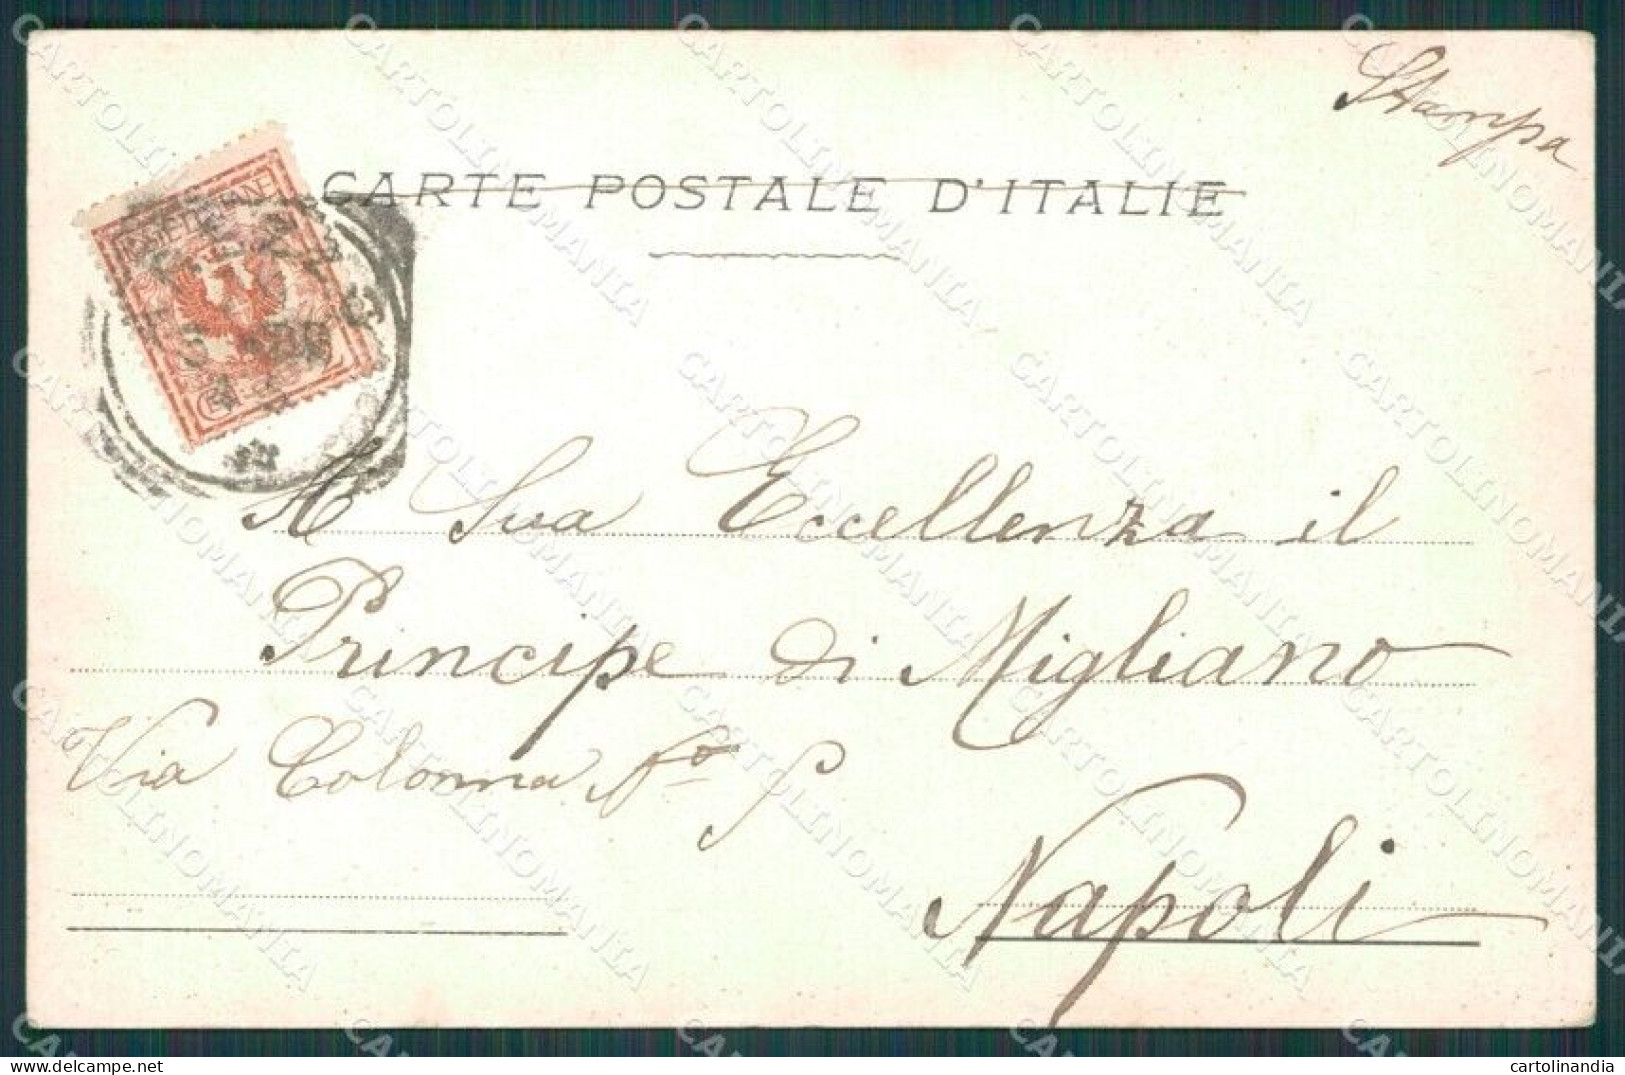 Stampa
CARTE POSTALE D'ITALIE
A Sua Eccellenza il
Principe di Migliano
Via Colonna
Napoli
CARTOLINOMANIA
cartolinandia